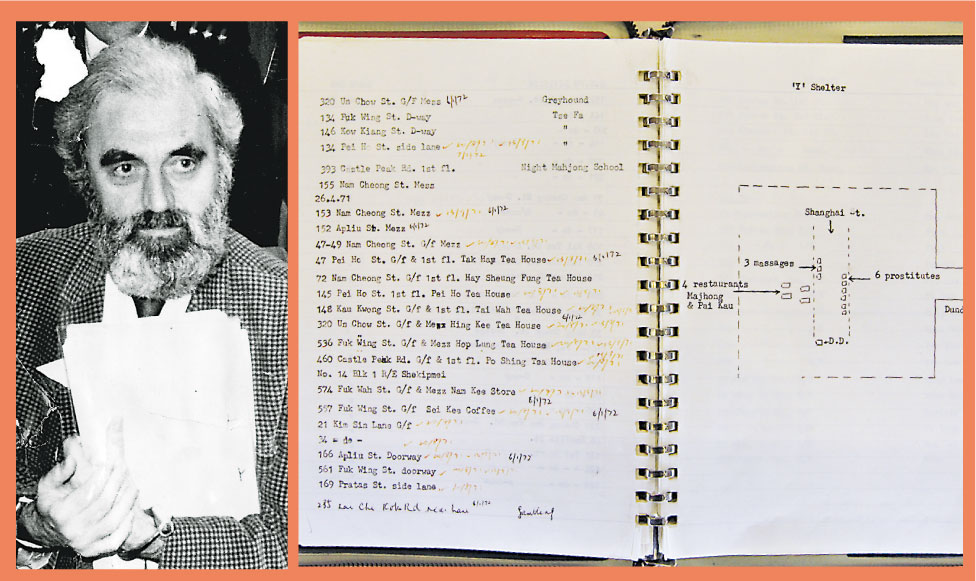 320 Un Chow St. G/F Mezz 6/1/72 Greyhound
134 Fuk Wing St. D-way Tse Fa
146 Kow Kiang St. D-way "
134 Pei Ho St. side lane "
393 Castle Peak Rd. 1st fl. Night Mahjong School
155 Nam Cheong St. Mezz
26.4.71
153 Nam Cheong St. Mezz 6/1/72
152 Apliu St. Mezz 6/1/72
47-49 Nam Cheong St. G/f Mezz
47 Pei Ho St. G/f & 1st fl. Tak Hay Tea House 6/1/72
72 Nam Cheong St. G/f 1st fl. Hay Sheung Fung Tea House
145 Pei Ho St. 1st fl. Pei Ho Tea House
148 Kau Kwong St. G/f & 1st fl. Tai Wah Tea House
6/1/72
320 Un Chow St. G/f & Mezz Hing Kee Tea House
536 Fuk Wing St. G/f & Mezz Hop Lung Tea House
460 Castle Peak Rd. G/f & 1st fl. Po Shing Tea House
No. 14 Blk 1 R/E Shekipmei
574 Fuk Wah St. G/f & Mezz Nam Kee Store
6/1/72
557 Fuk Wing St. G/f Sei Kee Coffee 6/1/72
21 Kim Sin Lane G/f
34 - do -
166 Apliu St. Doorway 6/1/72
561 Fuk Wing St. doorway
169 Pratas St. side lane
235 6/1/72
'Y' Shelter
Shanghai St.
3 massages
6 prostitutes
4 restaurants
Majhong
& Pai Kau
D.D.
Dund